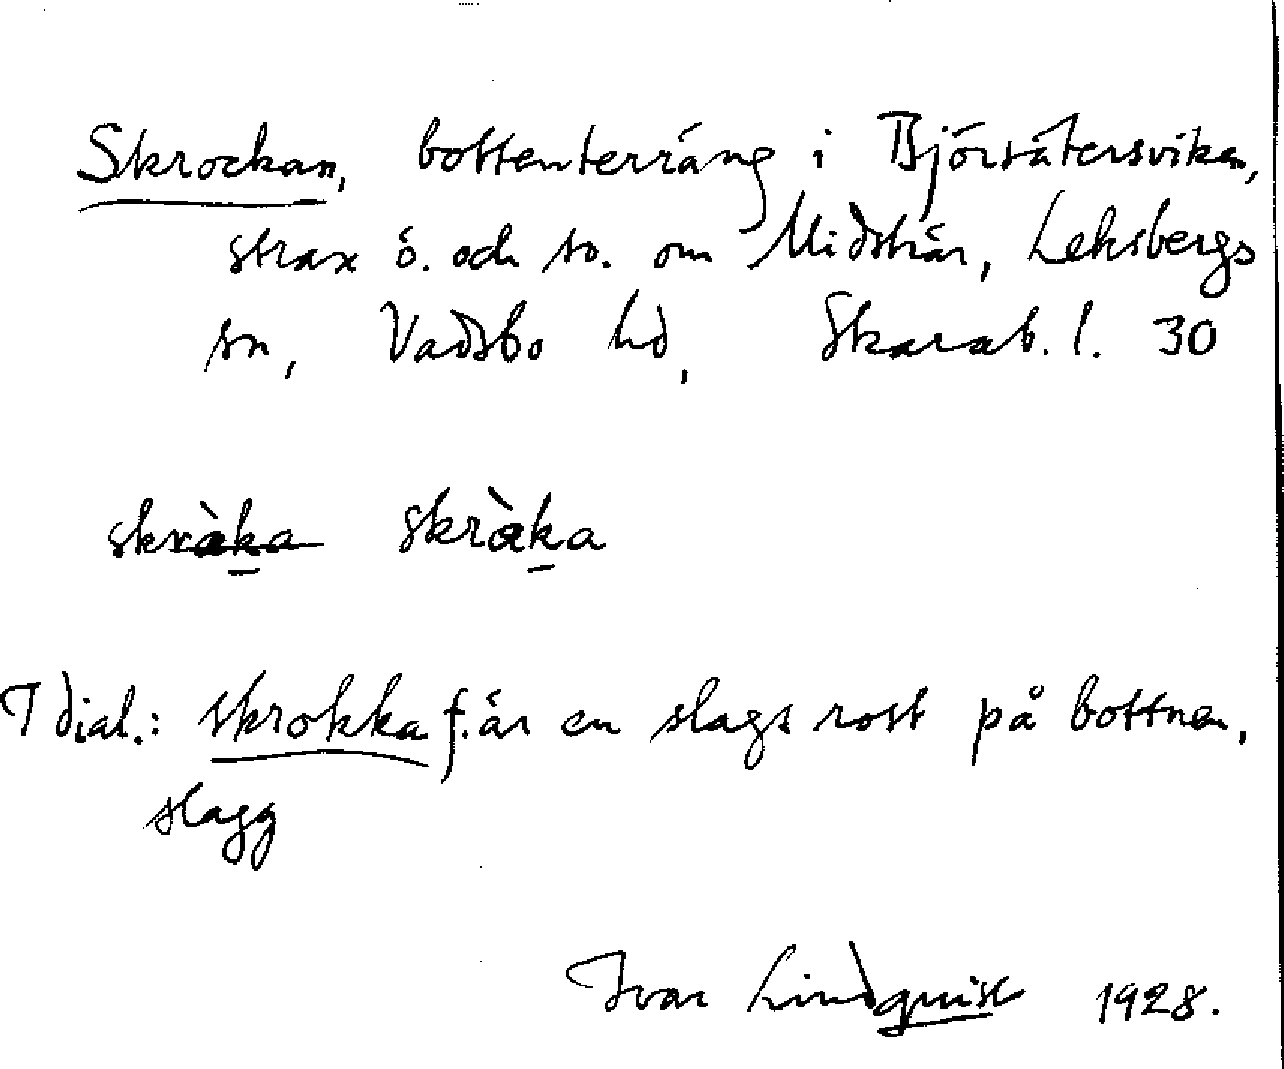 Skrockan, bottenterräng i Björsätersviken,
strax ö. och so. om Midskär, Leksbergs
sn, Vadsbo hd, Skarab. l. 30
skràka skràka
I dial.: skrokka f. är en slags rost på bottnen,
slagg
Ivar Lindquist 1928.